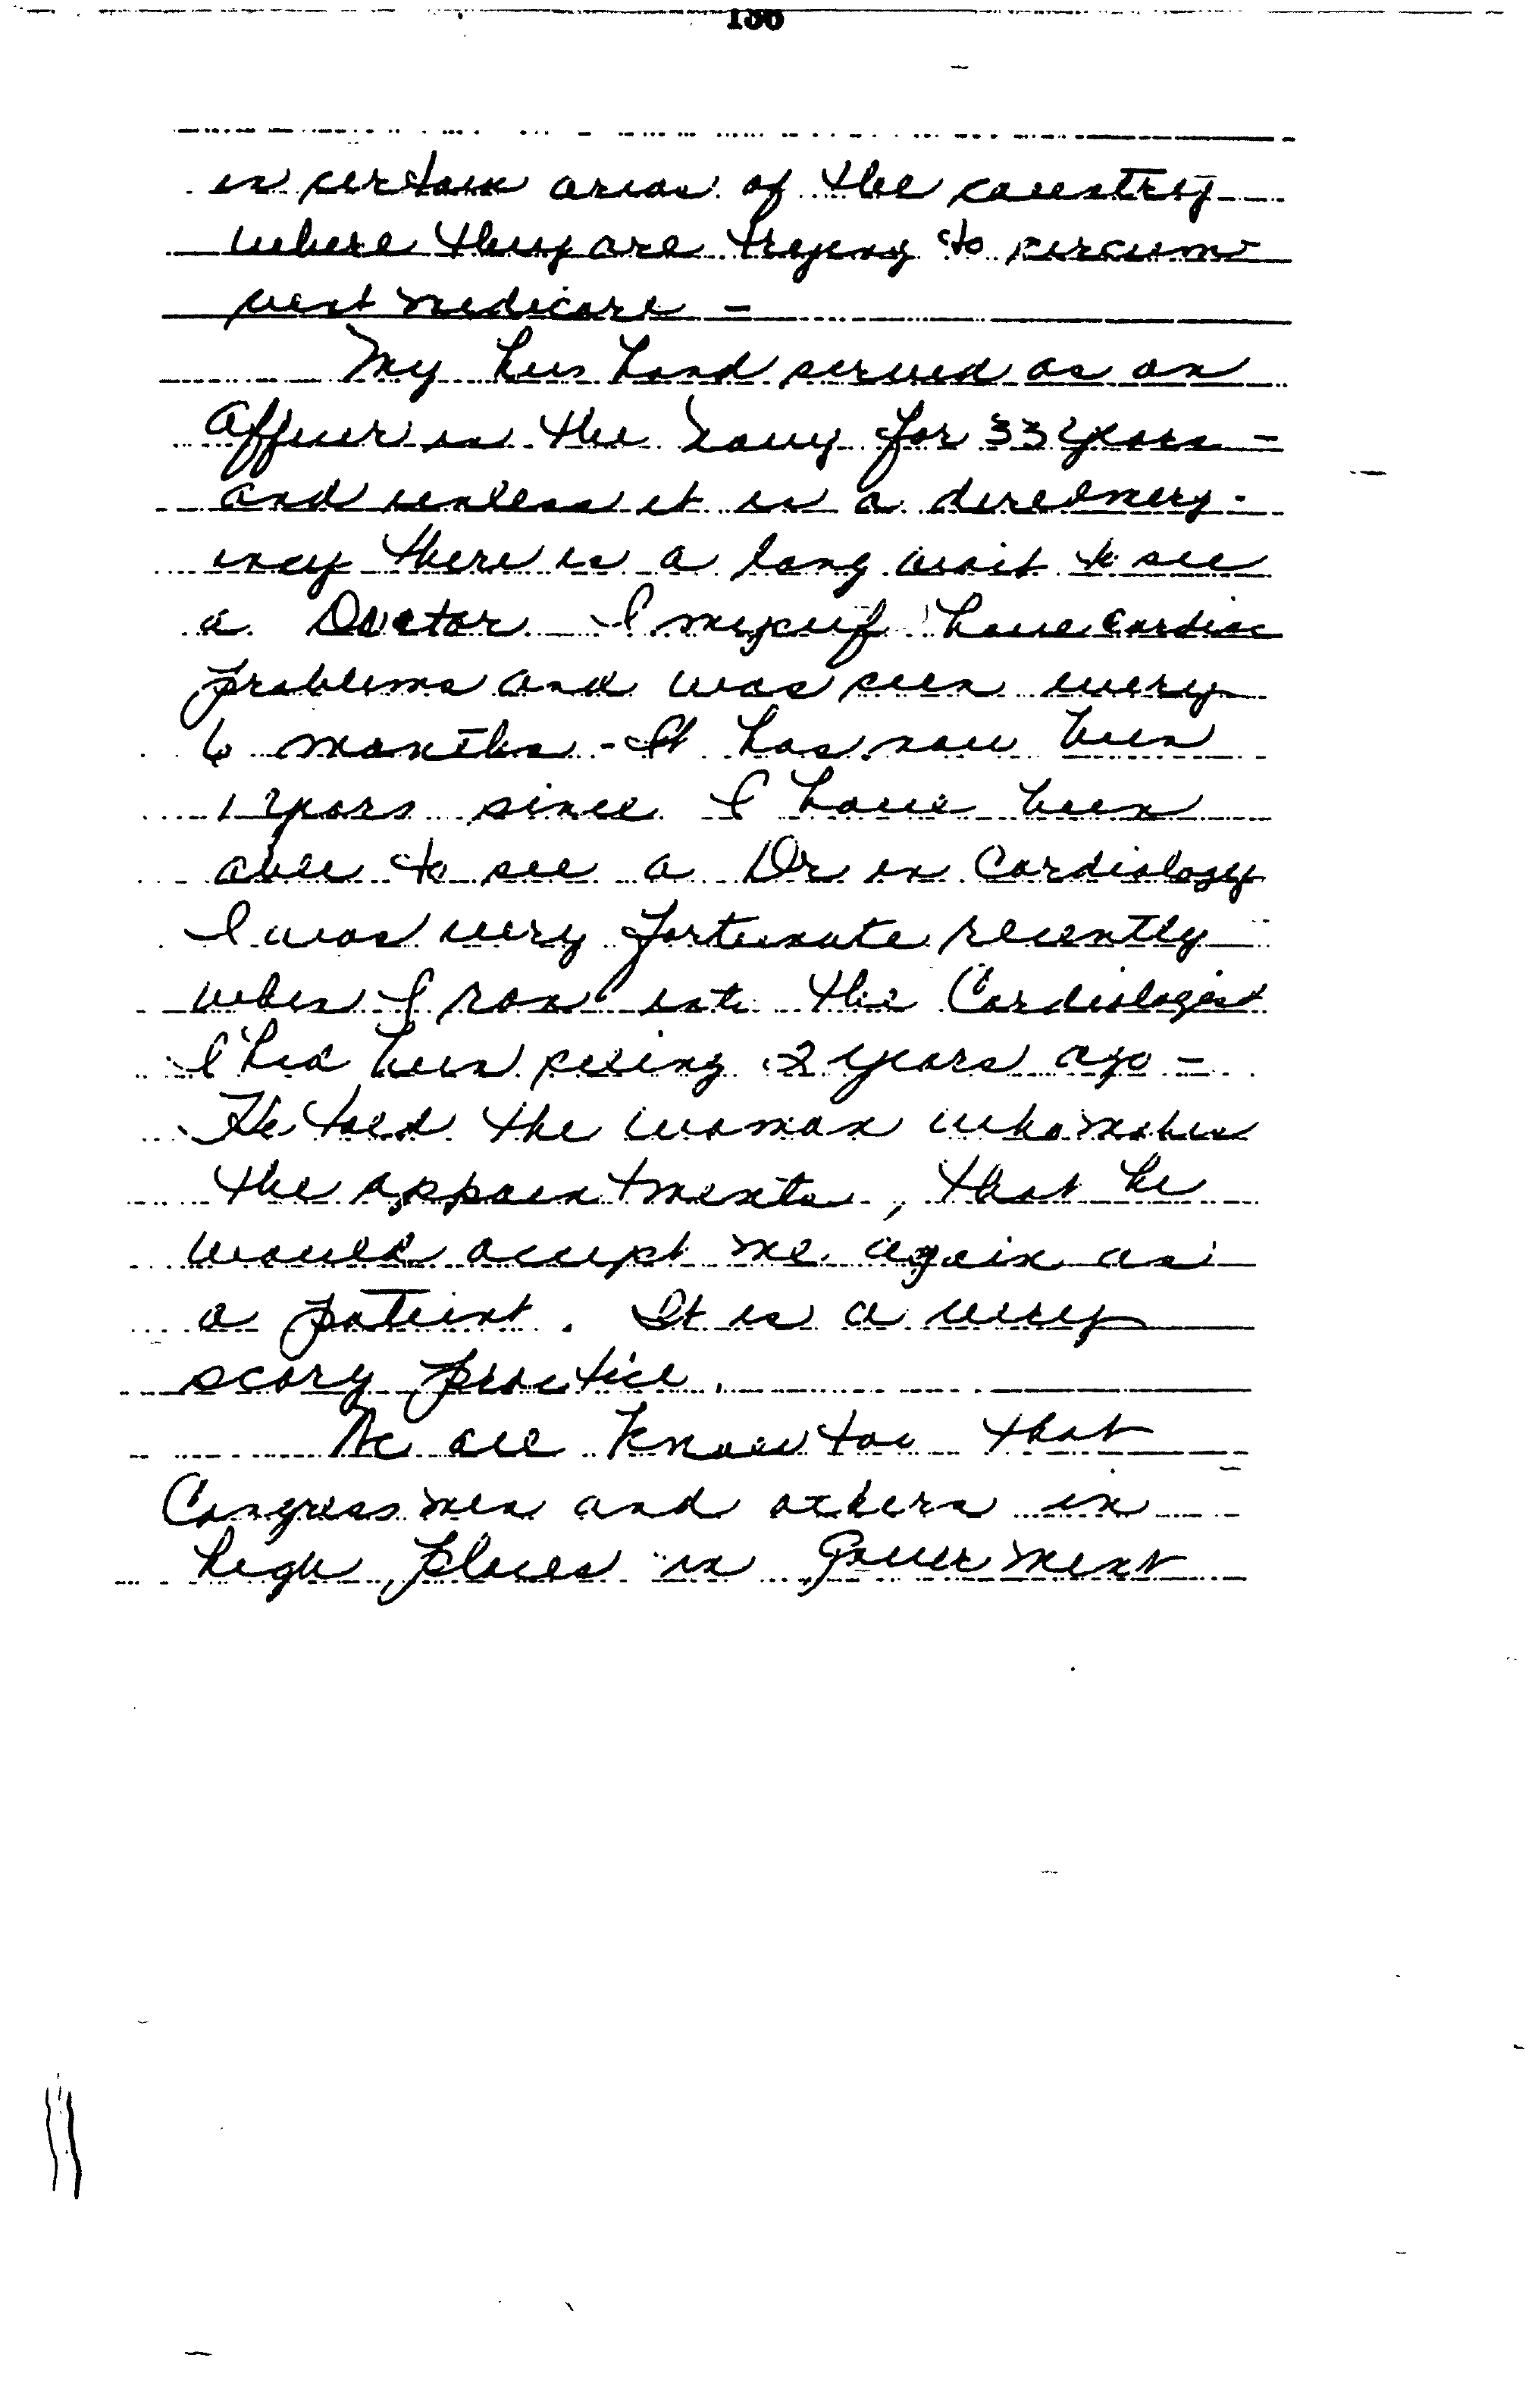 in certain areas of the country
where they are trying to circum
vent medicare -
My husband served as an
Officer in the Navy for 33 years -
and unless it is a dire emerg-
ency there is a long wait to see
a Doctor I myself have cardiac
problems and was seen every
6 months - It has now been
years since I have been
able to see a Dr in Cardiology
I was very fortunate recently
when I ran into the Cardiologist
I had been seeing 2 years ago -
He told the woman who makes
the appointments, that he
would accept me again as
a patient. It is a very
scary practice.
We all know too that
Congressmen and others in
high places in Government